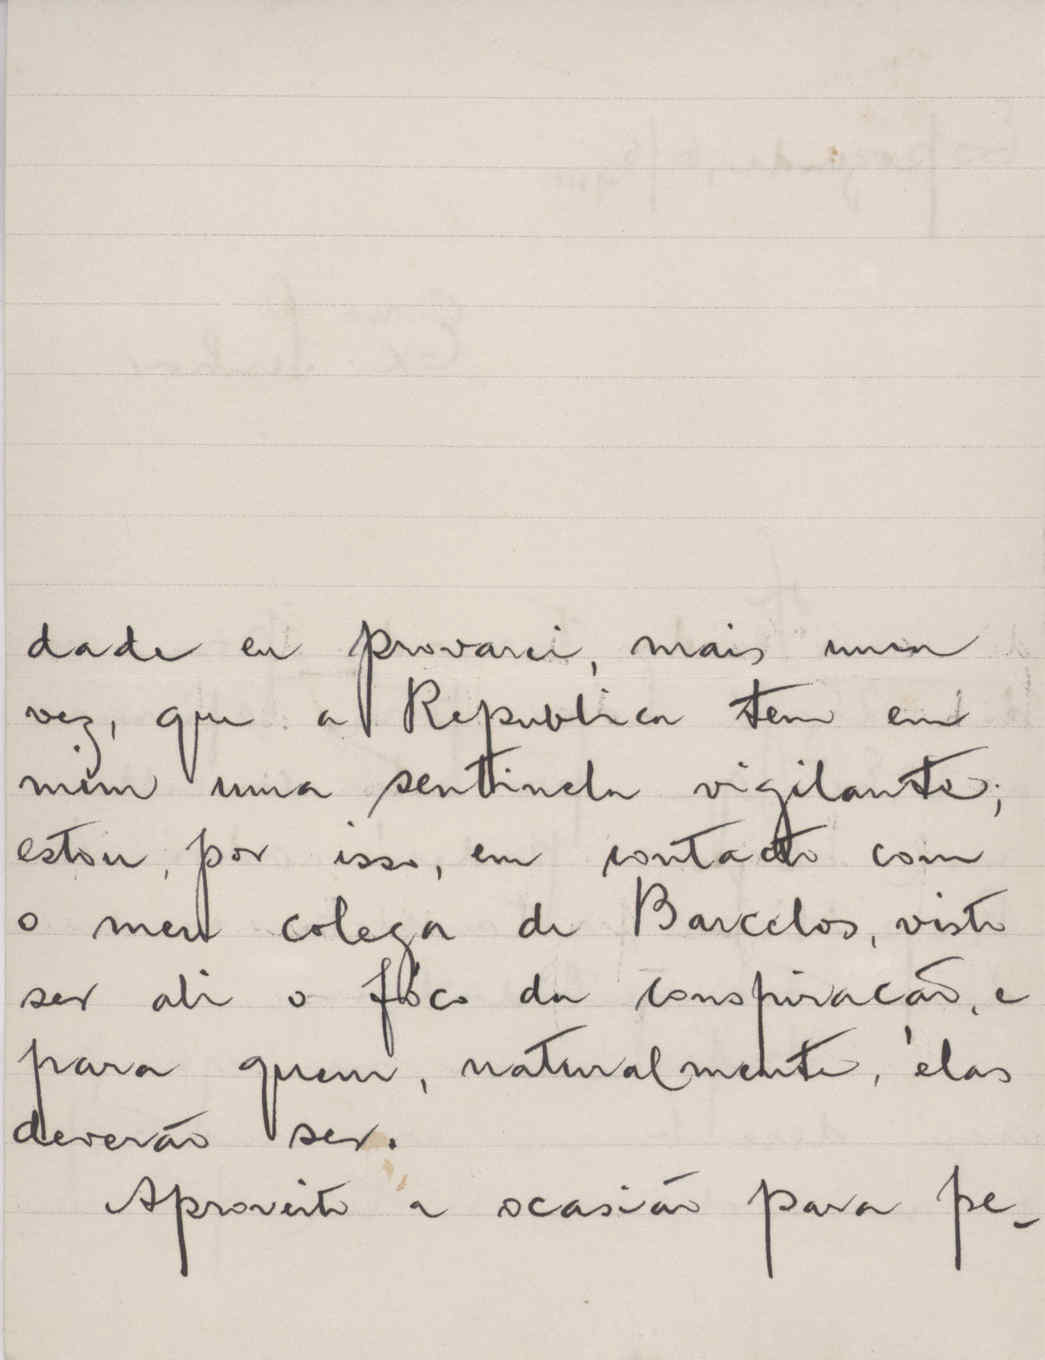 dade eu provarei, mais uma
vez, que a Republica tem em
mim uma sentinela vigilante;
estou, por isso, em contacto com
o meu colega de Barcelos, visto
ser ali o fóco da conspiracão, e
para quem, naturalmente, élas
deverão ser.
Aproveito a ocasião para pe-